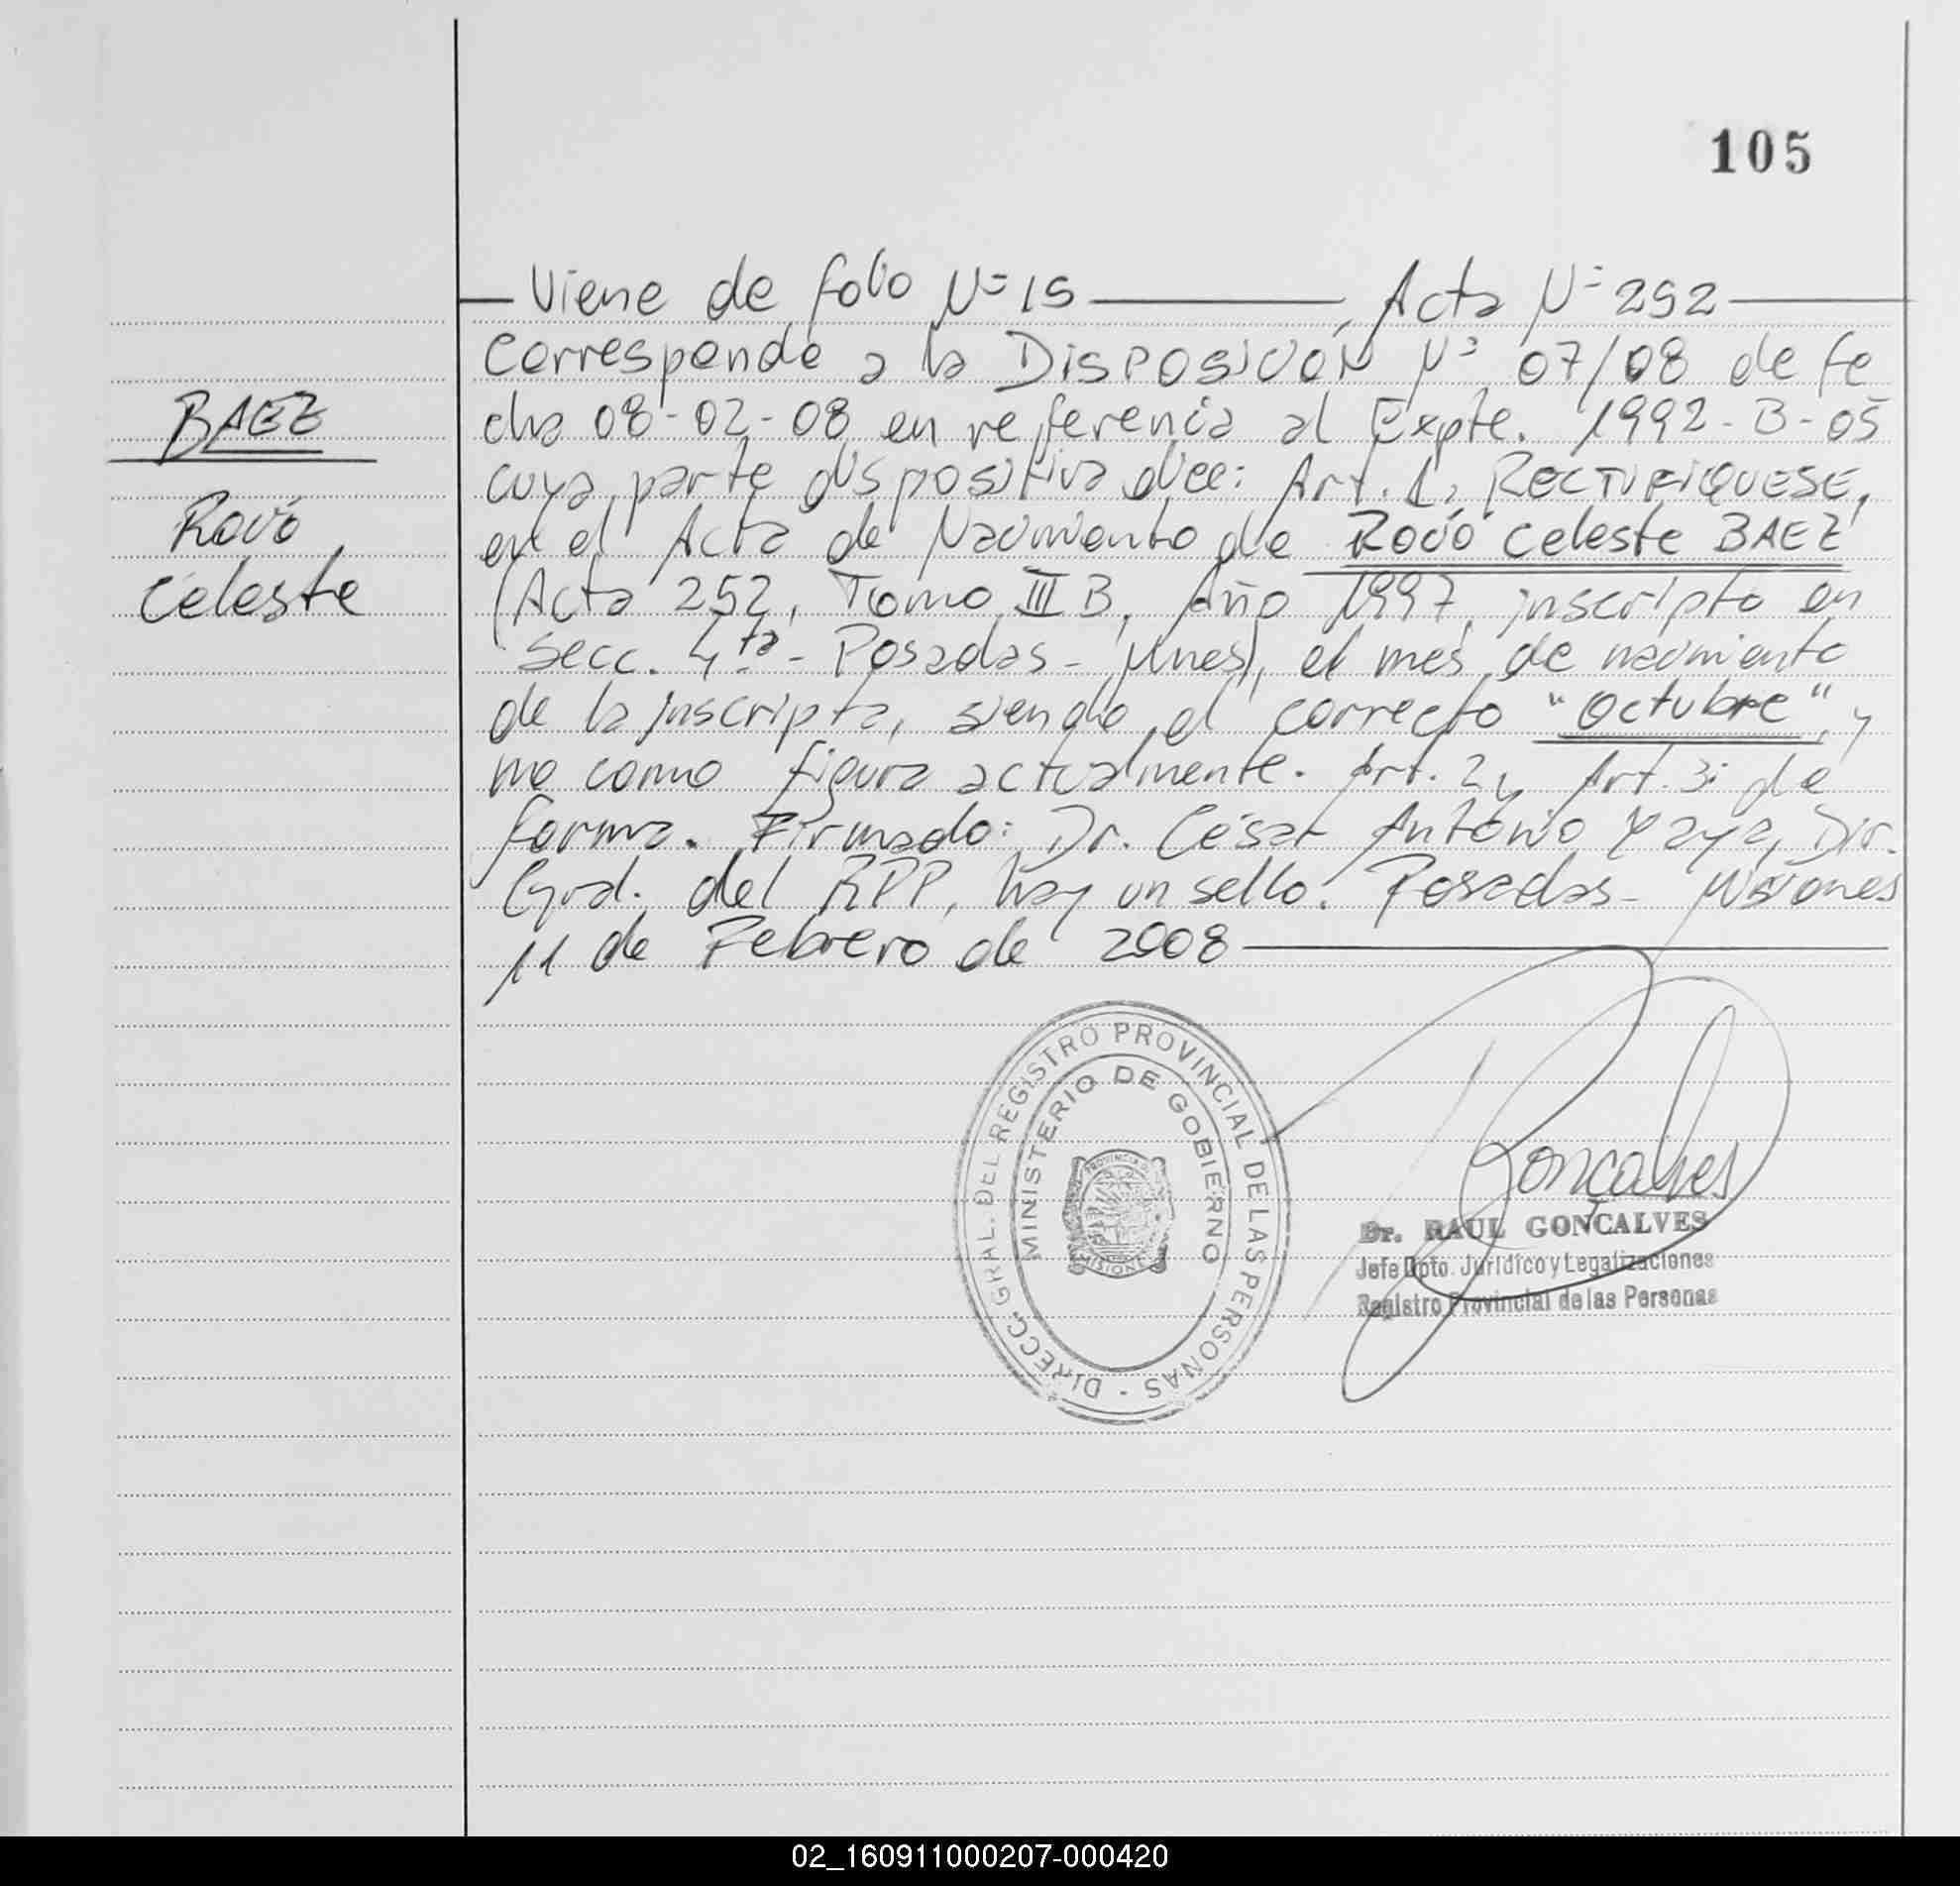 105
Viene de folio Nº 15 Acta Nº 252
BAEZ
Rocío
Celeste
Corresponde a la DISPOSICIÓN Nº 07/08 de fe
cha 08-02-08 en referencia al Expte. 1992-B-05
cuya parte dispositiva dice: Art. 1, RECTIFIQUESE,
en el Acta de Nacimiento de ROCÍO Celeste BAEZ
(Acta 252, Tomo III B, Año 1997, inscripta en
Secc. 4ta - Posadas - Mnes), el mes de nacimiento
de la inscripta, siendo el correcto "Octubre", y
no como figura actualmente. Art. 2 y Art. 3: de
forma. Firmado: Dr. César Antonio Yaya, Dir.
Gral. del RPP, hay un sello. Posadas - Misiones
11 de Febrero de 2008
DIRECC. GRAL. DEL REGISTRO PROVINCIAL DE LAS PERSONAS -
MINISTERIO DE GOBIERNO
PROVINCIA DE
MISIONES
Gonçalves
Dr. RAUL GONÇALVES
Jefe Dpto. Jurídico y Legalizaciones
Registro Provincial de las Personas
02_160911000207-000420